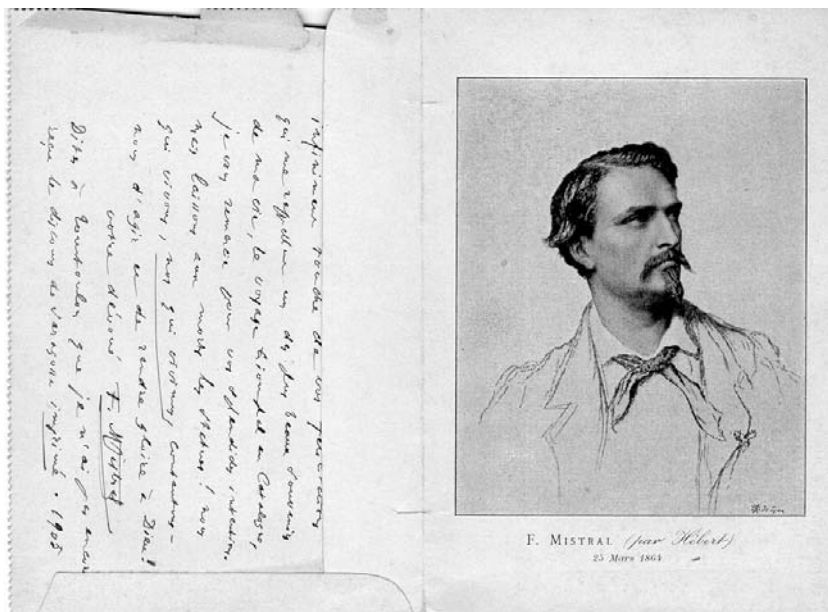 infiniment touché de vos
qui me rappellent un des plus beaux souvenirs
de ma vie, le voyage triomphal en Catalogne,
je vous remercie pour vos splendides intentions.
mais laissons aux morts les statues! nous
qui vivons, nos qui vivimus, contentons-
nous d'agir et de rendre gloire à Dieu!
votre dévoué F. Mistral
Dites à que je n'ai pas encore
reçu le discours de imprimé. 1905
F. MISTRAL (par Hébert)
25 Mars 1864